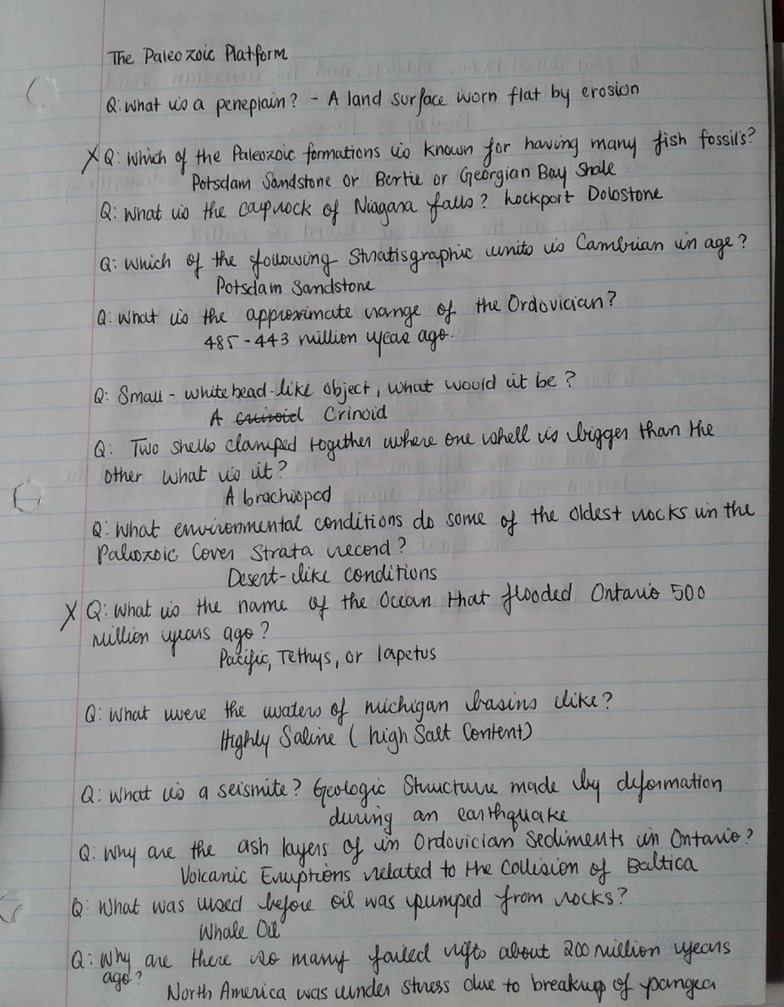 The Paleozoic Platform
Q: What is a peneplain? - A land surface worn flat by erosion
X Q: Which of the Paleozoic formations is known for having many fish fossils?
Potsdam Sandstone or Bertie or Georgian Bay Shale
Q: What is the caprock of Niagara falls? Lockport Dolostone
Q: Which of the following Stratisgraphic units is Cambrian in age?
Potsdam Sandstone
Q: What is the approximate range of the Ordovician?
485-443 million years ago.
Q: Small-white bead-like object, what would it be?
A crinoid Crinoid
Q: Two shells clamped together where one shell is bigger than the
other what is it?
A brachiopod
Q: What environmental conditions do some of the oldest rocks in the
Paleozoic Cover Strata record?
Desert-like conditions
X Q: What is the name of the Ocean that flooded Ontario 500
million years ago?
Pacific, Tethys, or Iapetus
Q: What were the waters of michigan basins like?
Highly Saline (high Salt Content)
Q: What is a seismite? Geologic Structure made by deformation
during an earthquake
Q: Why are the ash layers of in Ordovician Sediments in Ontario?
Volcanic Eruptions related to the Collision of Baltica
Q: What was used before oil was pumped from rocks?
Whale Oil
Q: Why are there so many failed rifts about 200 million years
ago?
North America was under stress due to breakup of pangea